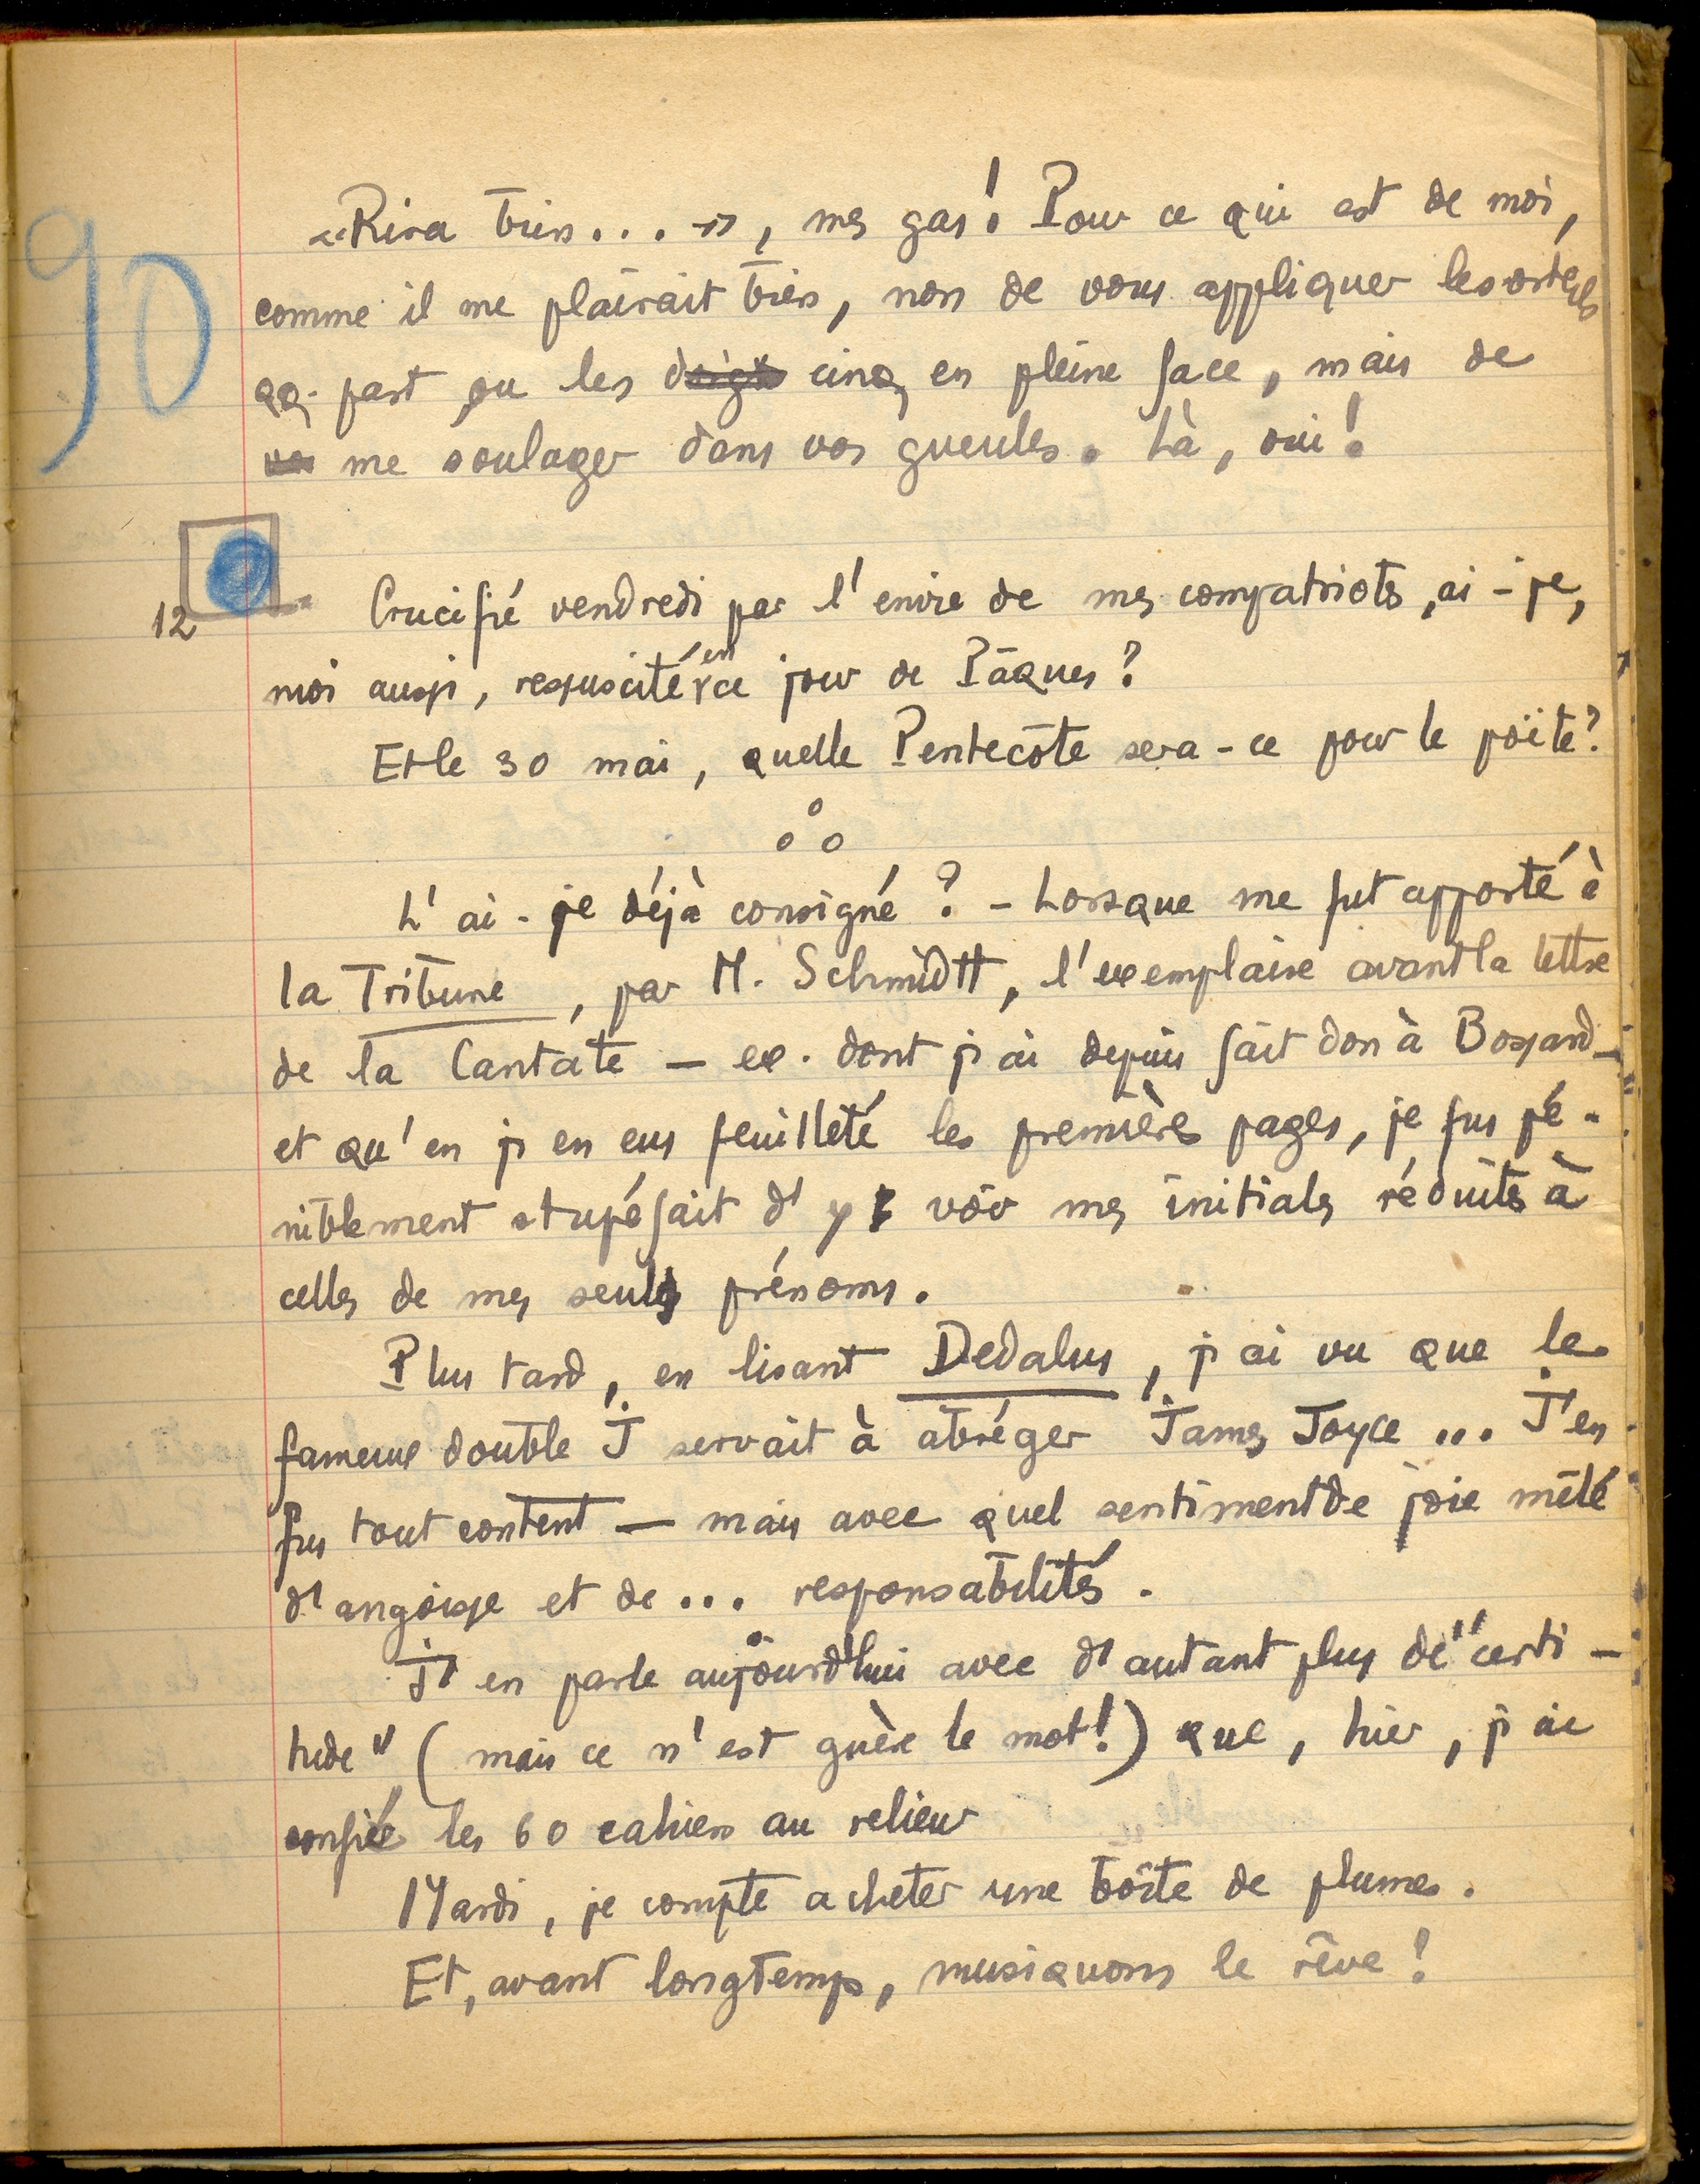 90
«Rira bien... », mes gas! Pour ce qui est de moi,
comme il me plairait bien, non de vous appliquer les orteils
qq. part ou les doigts cinq en pleine face, mais de
me soulager dans vos gueules. Là, oui!
12
Crucifié vendredi par l'envie de mes compatriotes, ai-je,
moi aussi, ressuscité en ce jour de Pâques?
Et le 30 mai, quelle Pentecôte sera-ce pour le poëte?
L'ai-je déjà consigné? - Lorsque me fut apporté à
la Tribune, par M. Schmidtt, l'exemplaire avant la lettre
de la Cantate — ex. dont j'ai depuis fait don à Bossard —
et qu'en j'en eus feuilleté les premières pages, je fus pé-
niblement stupéfait d'y voir mes initiales réduites à
celles de mes seuls prénoms.
Plus tard, en lisant Dedalus, j'ai vu que le
fameux double J servait à abréger James Joyce ... J'en
fus tout content — mais avec quel sentiment de joie mêlé
d'angoisse et de ... responsabilités.
J'en parle aujourd'hui avec d'autant plus de "certi-
tude" (mais ce n'est guère le mot!) que, hier, j'ai
confié les 60 cahiers au relieur
Mardi, je compte acheter une boîte de plumes.
Et, avant longtemps, musiquons le rêve!